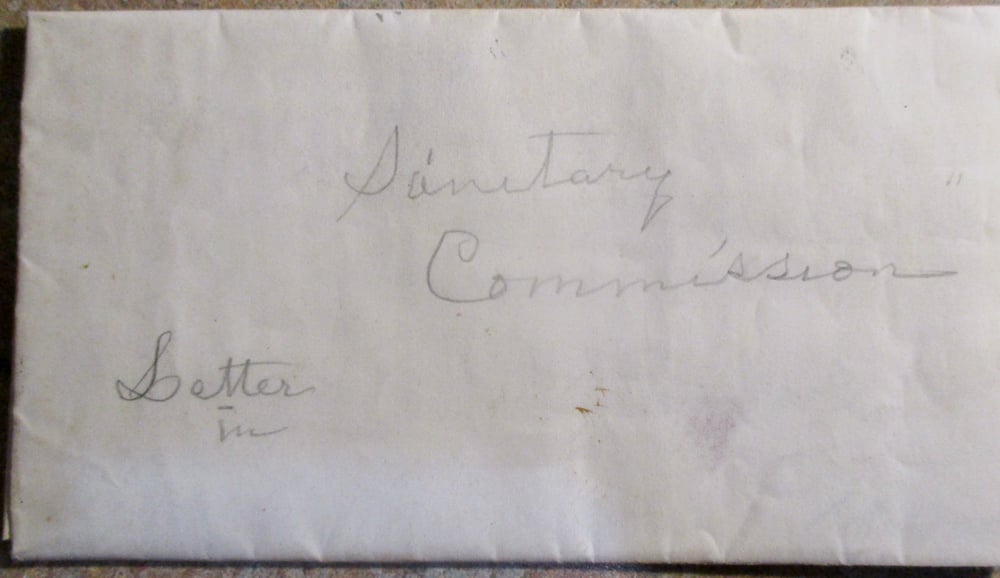 Sanetary
Commission
Letter
in